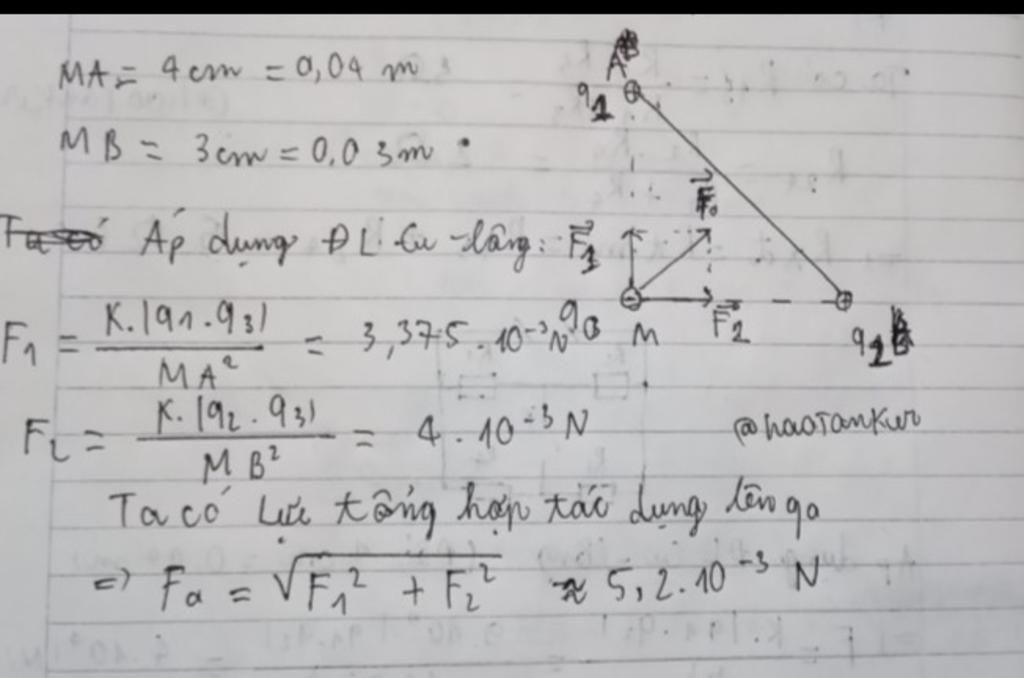 MA = 4 cm = 0,04 m
MB = 3 cm = 0,03 m
Áp dụng ĐL Cu-lông:
F1 = K.|q1.q3| / MA² = 3,375.10⁻³N
F2 = K.|q2.q3| / MB² = 4.10⁻³ N
Ta có lực tổng hợp tác dụng lên qo
=> Fa = √F1² + F2² ≈ 5,2.10⁻³ N
A
q1
F⃗o
F⃗1
qo
M
F⃗2
q2 B
@haoTanKur